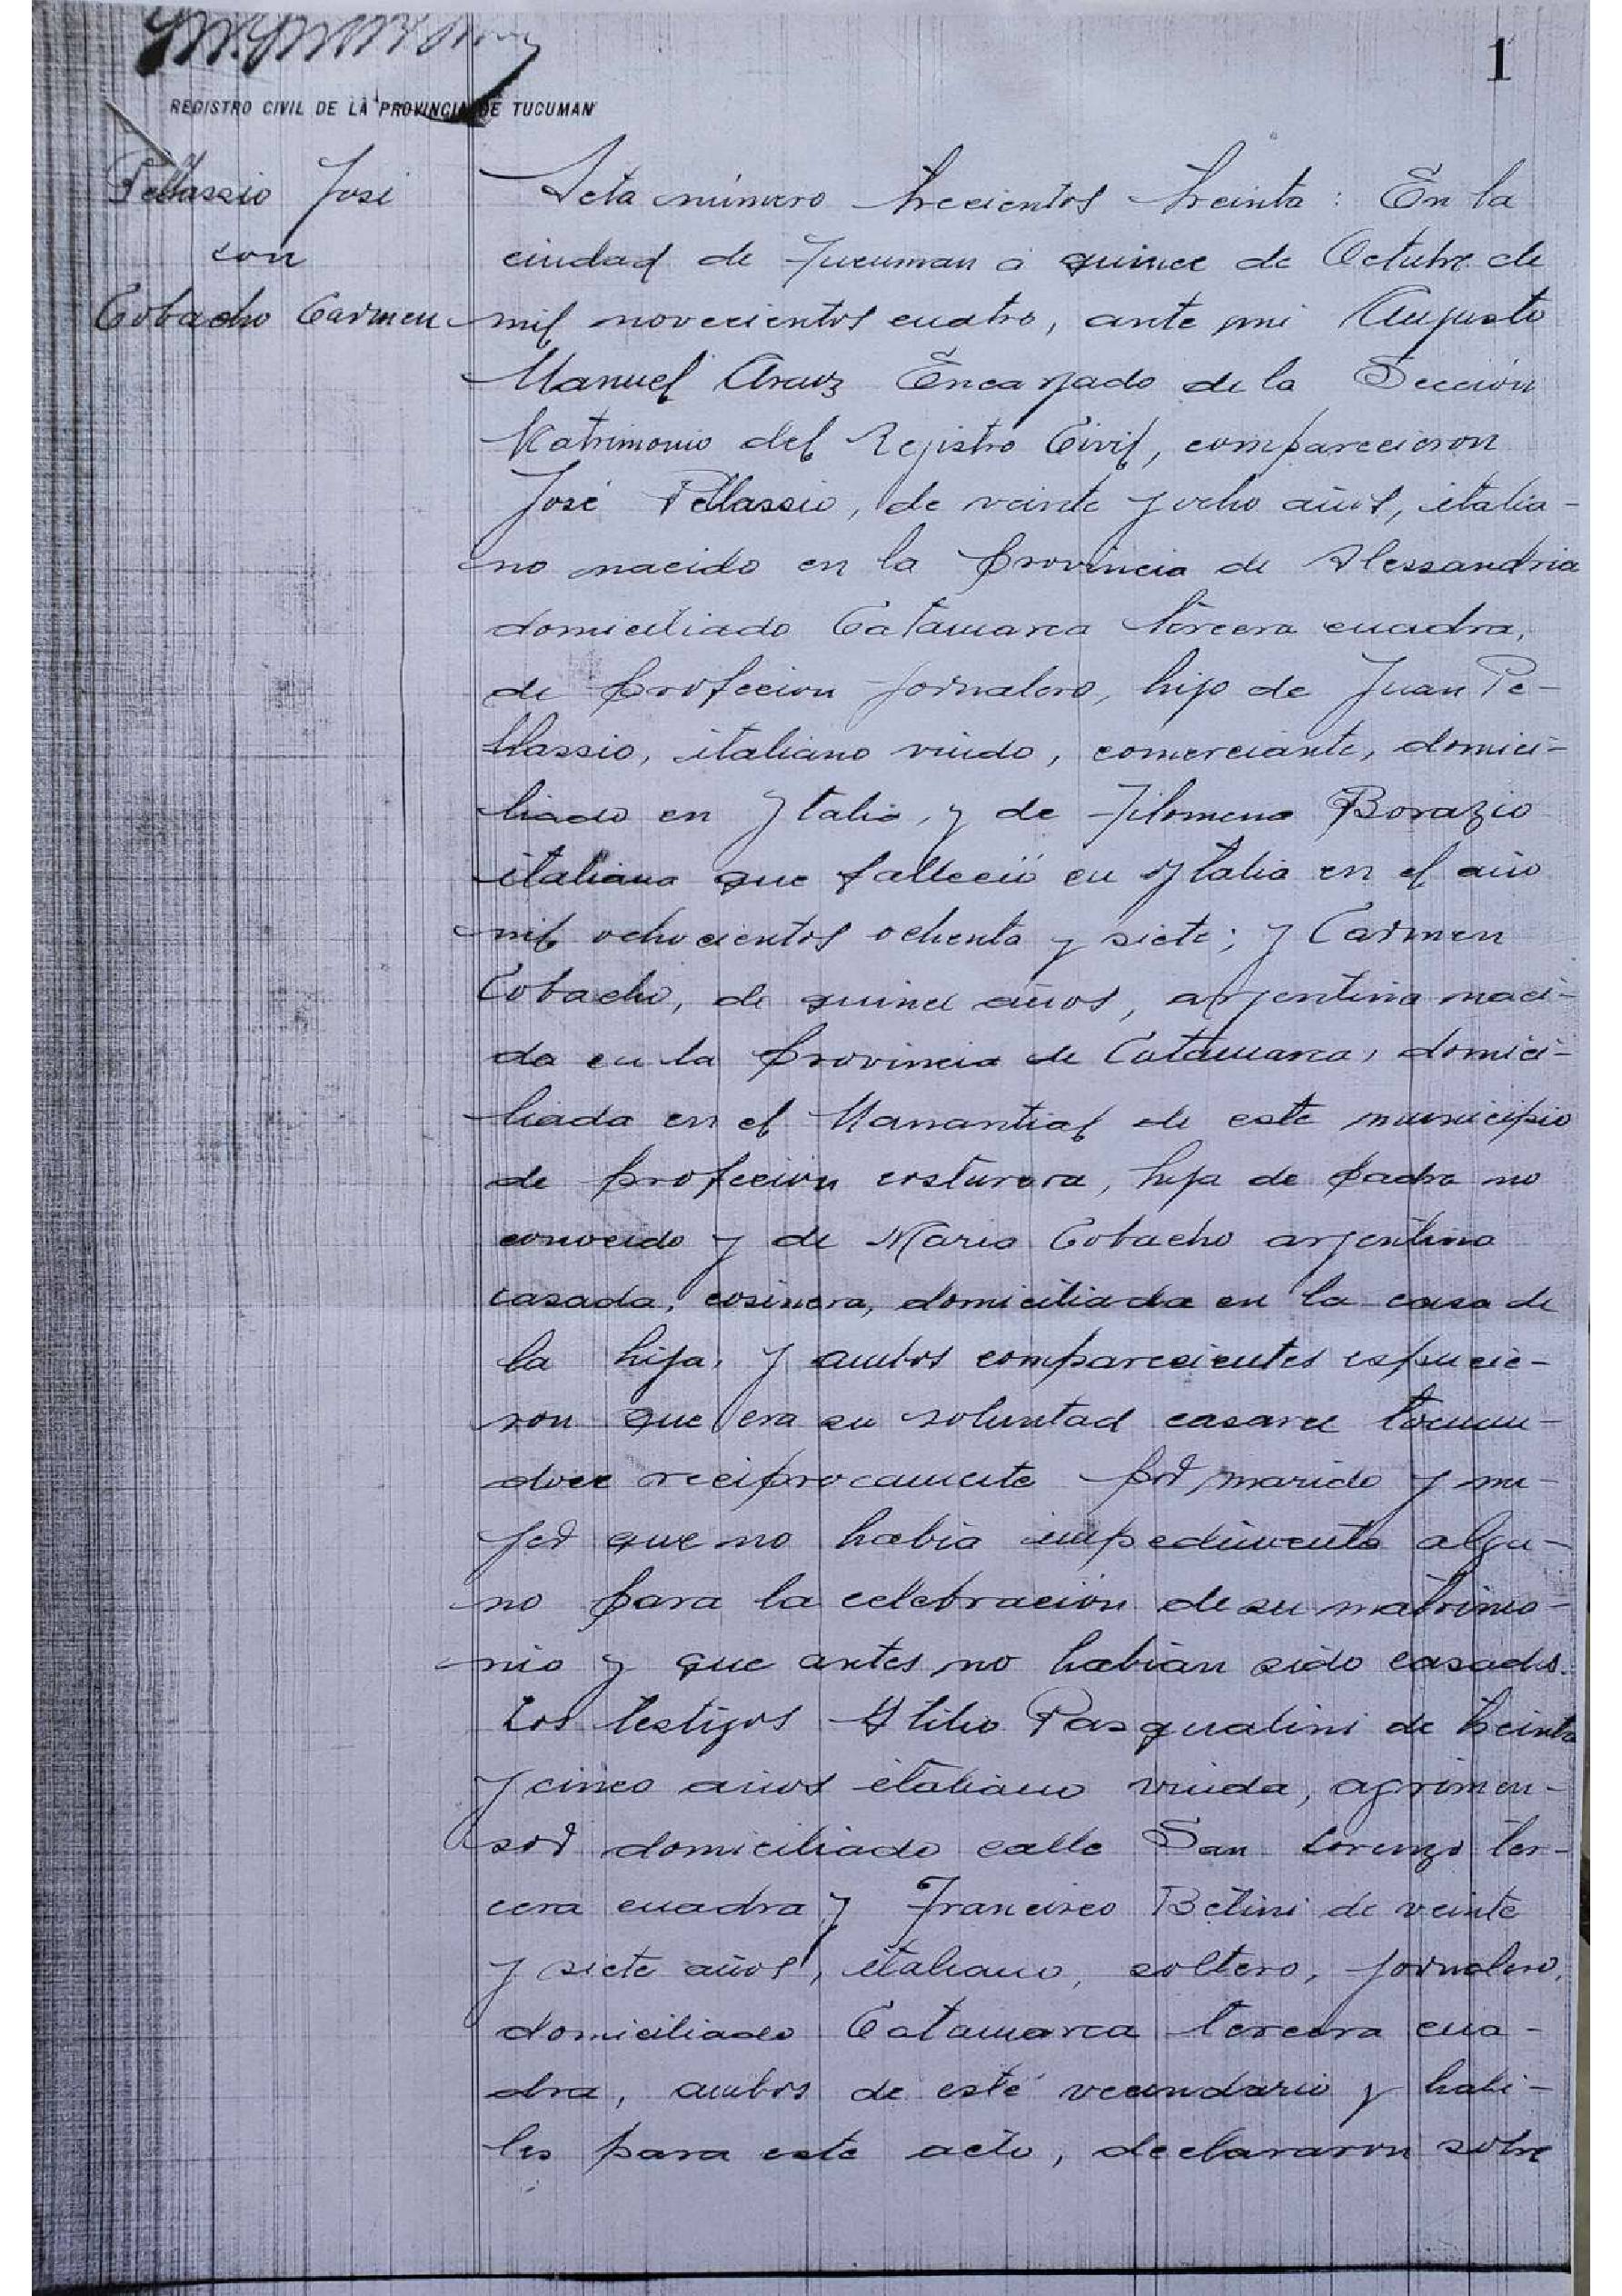 1
REGISTRO CIVIL DE LA PROVINCIA DE TUCUMAN
Pellassio José
con
Cobacho Carmen
Acta número trecientos treinta: En la
ciudad de Tucuman á quince de Octubre de
mil novecientos cuatro, ante mi Augusto
Manuel Araoz Encargado de la Sección
Matrimonio del Rejistro Civil, comparecieron
José Pellassio, de veinte y ocho años, italia-
no nacido en la provincia de Alessandria
domiciliado Catamarca tercera cuadra,
de profecion jornalero, hijo de Juan Pe-
llassio, italiano viudo, comerciante, domici-
liado en Ytalia, y de Filomena Borazio
italiana que falleció en Ytalia en el año
mil ochocientos ochenta y siete; y Carmen
Cobacho, de quince años, arjentina naci-
da en la provincia de Catamarca, domici-
liada en el Manantial de este municipio
de profecion costurera, hija de padre no
conocido y de Maria Cobacho arjentina
casada, cosinera, domiciliada en la casa de
la hija, y ambos comparecientes espucie-
ron que era su voluntad casarce toman-
doce reciprocamente por marido y mu-
jer que no habia impedimento algu-
no para la celebración de su matrimo-
nio y que antes no habian sido casados.
Los testigos Atilio Pasqualini de treinta
y cinco años italiano viudo, agrimen-
sor domiciliado calle San Lorenzo ter-
cera cuadra y Francisco Betini de veinte
y siete años, italiano, soltero, jornalero,
domiciliado Catamarca tercera cua-
dra, ambos de este vecindario y habi-
les para este acto, declararon sobre